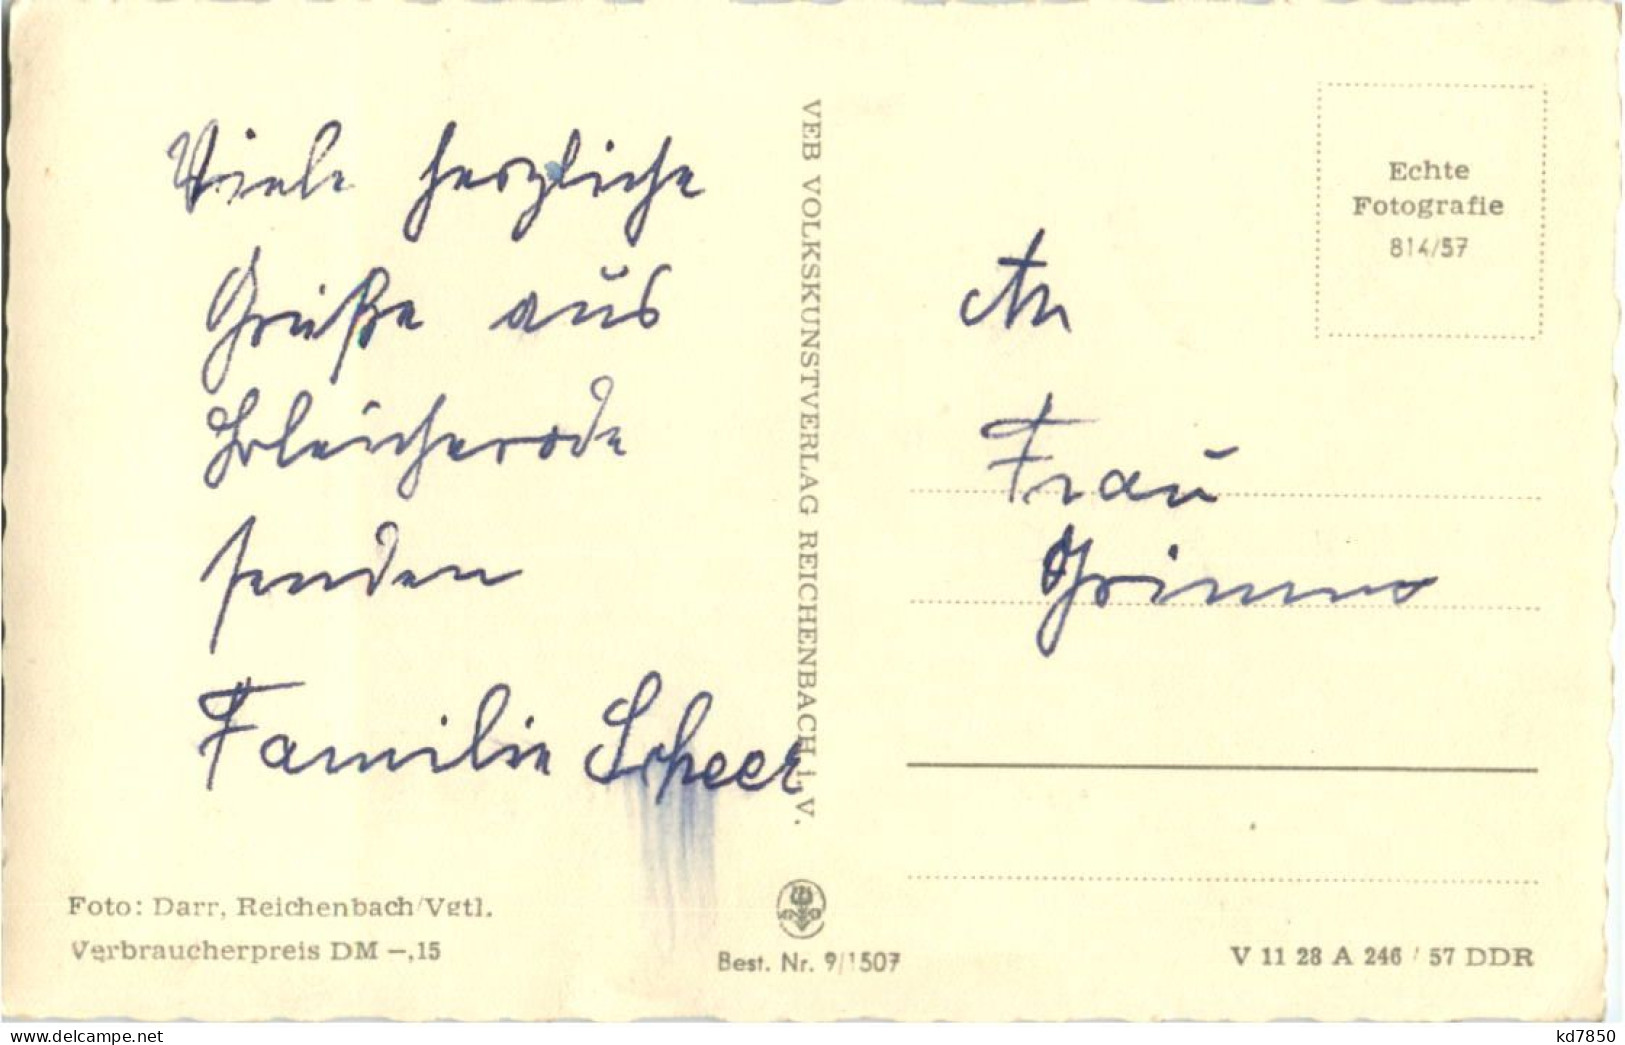 Viele herzliche
Grüße aus
Bleicherode
senden
Familie Scheer
Foto: Darr, Reichenbach/Vgtl.
Verbraucherpreis DM –,15
VEB VOLKSKUNSTVERLAG REICHENBACH i. V.
Best. Nr. 9/1507
Echte
Fotografie
814/57
An
Frau
Grimm
V 11 28 A 246 / 57 DDR
www.delcampe.net
kd7850